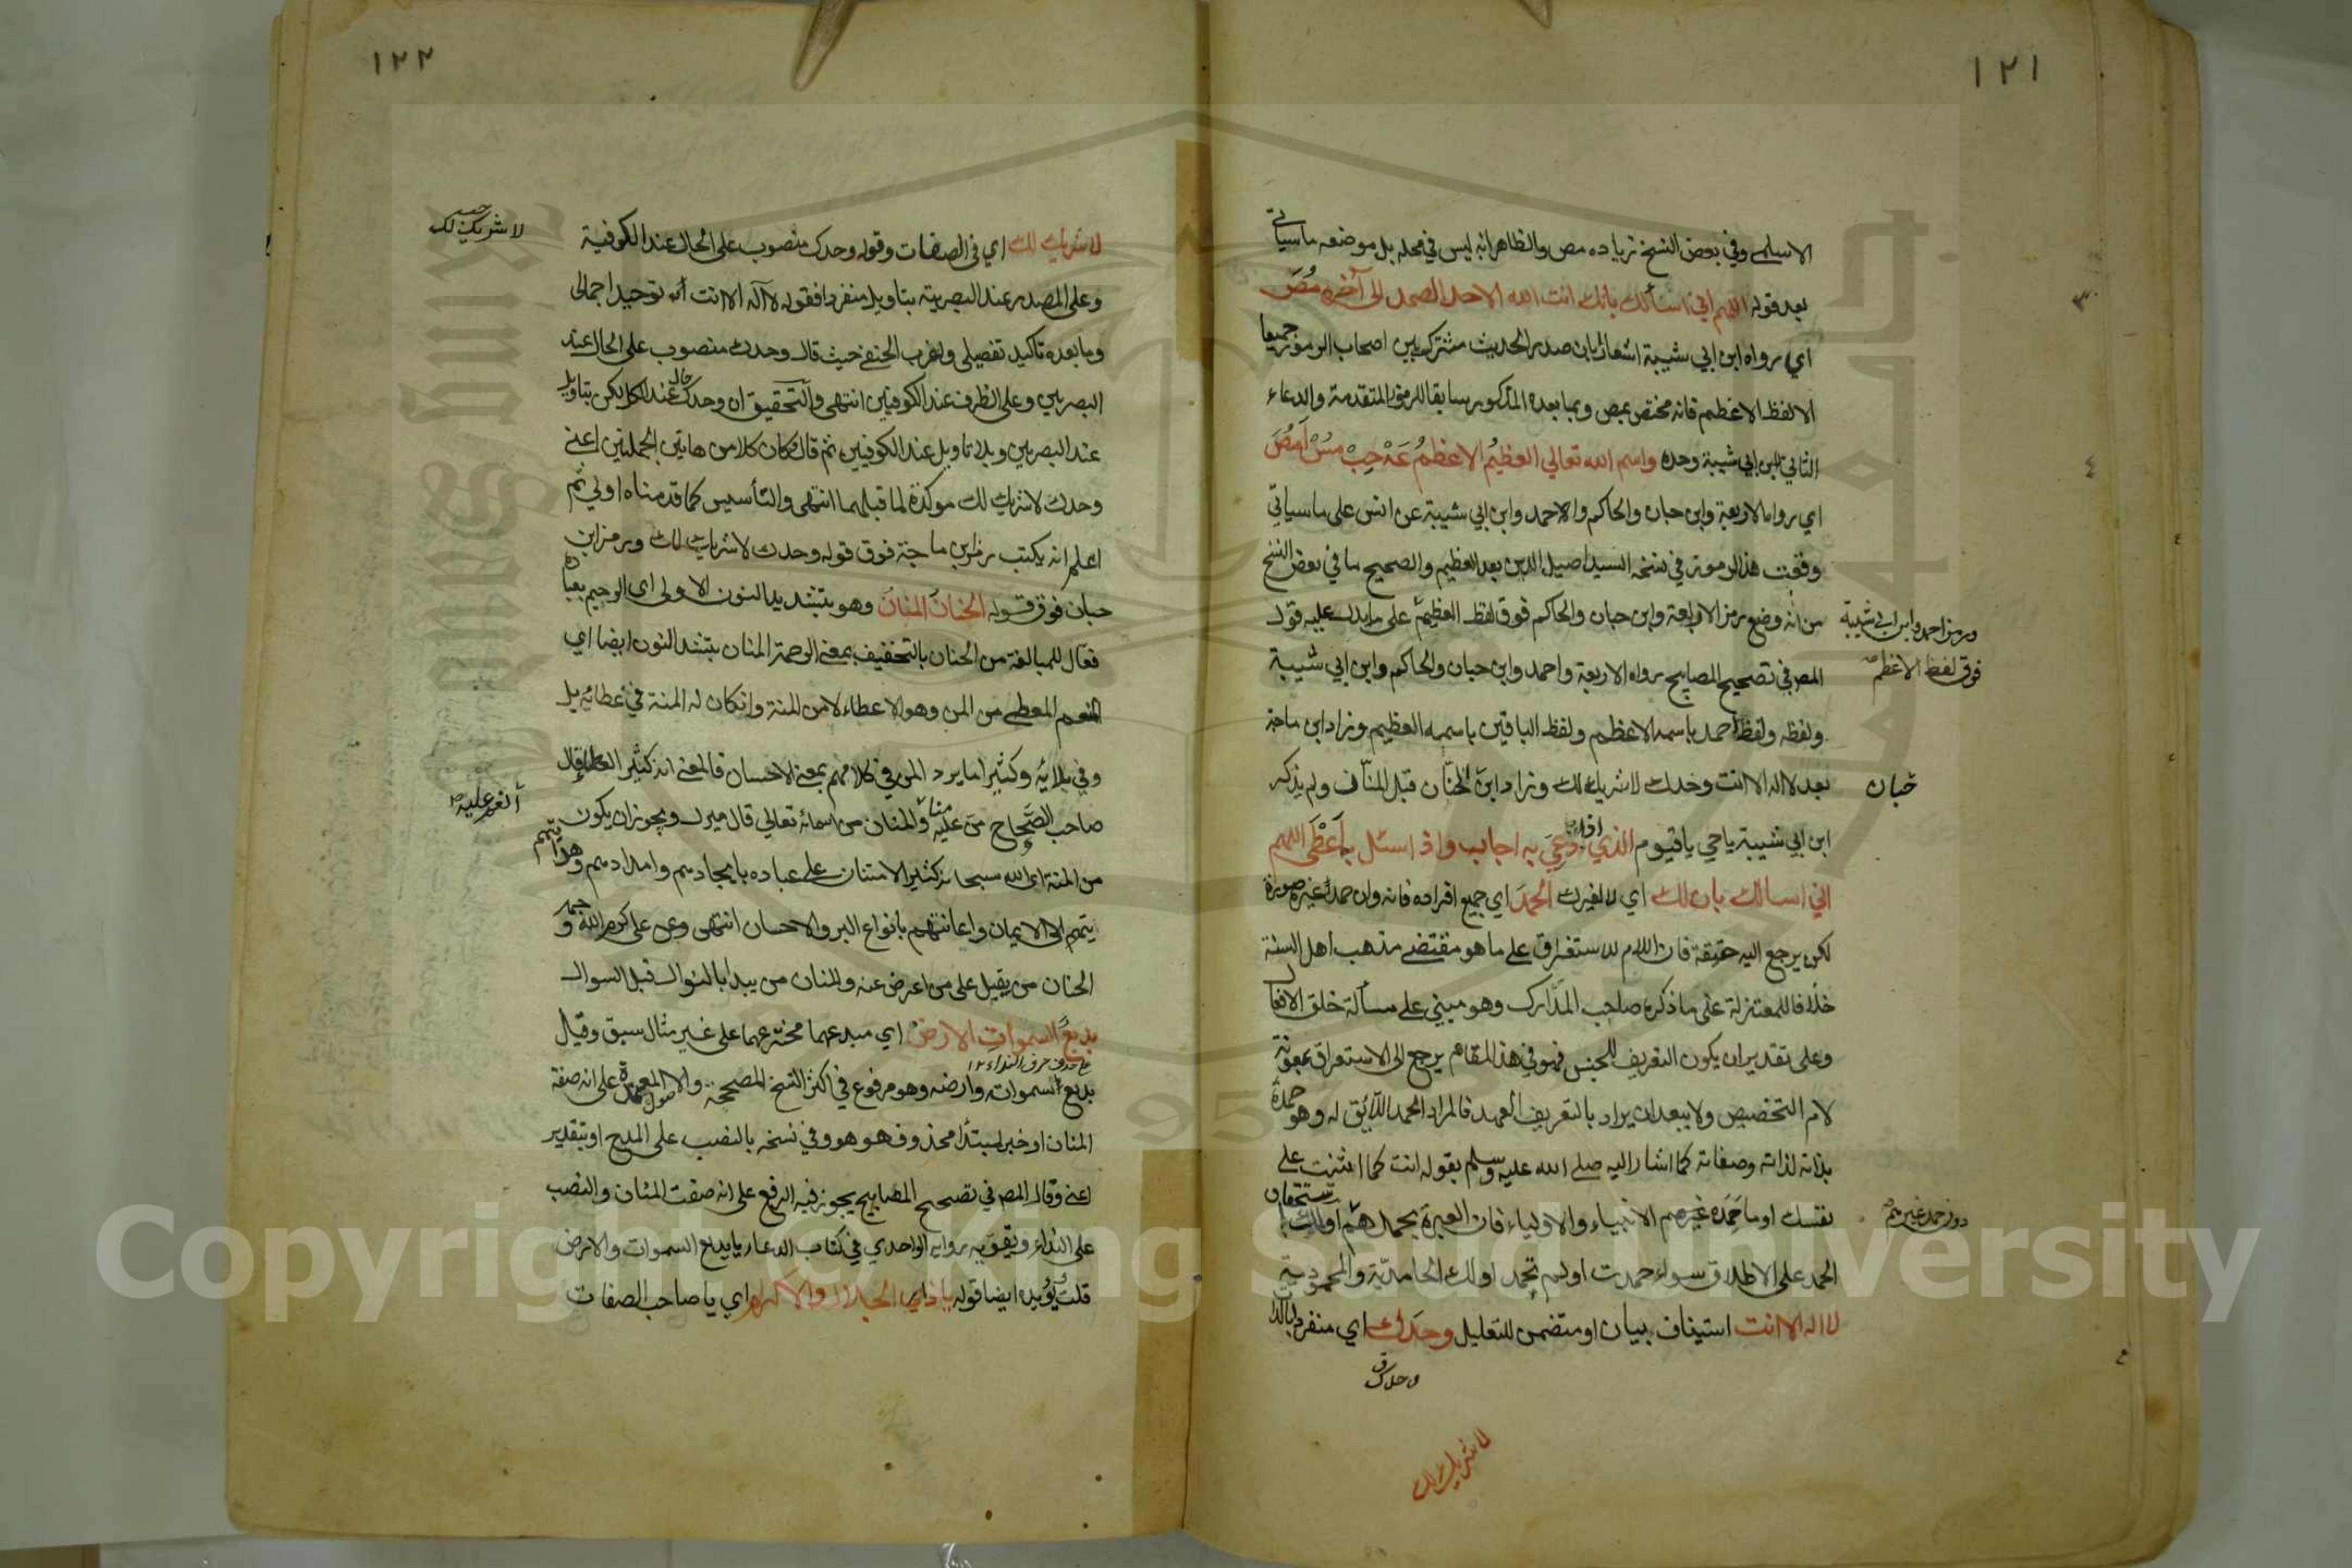 ١٢١
الاسلمي وفي بعض النسخ زياده مص والظاهر انه ليس في محله بل موضعه ما سياتي
بعد قوله اللهم اني اسألك بانك انت الله الاحد الصمد الى آخره مُصَ
اي رواه ابن ابي شيبة اشعارا بان صدر الحديث مشترك بين اصحاب الرموز جميعا
الا لفظ الاعظم فانه مختص بمص وبما بعده المذكور سابقا للرموز المتقدمة والدعاء
الثاني لابن ابي شيبة وحده واسم الله تعالي العظيمُ الاعظمُ عَهْ حِبْ مسْ اَ مُصَ
اي رواه الاربعة وابن حبان والحاكم والاحمد وابن ابي شيبة عن انس على ما سياتي
وقعت هذا الرموز في نسخه السيد اصيل الدين بعد العظيم والصحيح ما في بعض النسخ
من انه وضع رمز الاربعة وابن حبان والحاكم فوق لفظ العظيم على ما يدل عليه قول
ورمز احمد وابن ابي شيبة
فوق لفظ الاعظم
المص في تصحيح المصابيح رواه الاربعة واحمد وابن حبان والحاكم وابن ابي شيبة
ولفظه ولفظ احمد باسمه الاعظم ولفظ الباقين باسمه العظيم وزاد ابن ماجة
بعد لا اله الا انت وحدك لا شريك لك وزاد ابن الحنّان قبل المنّان ولم يذكر
حبان
ابن ابي شيبة يا حي يا قيوم الذي اذا دُعِيَ به اجاب واذا سئل به اَعْطَى اللهم
اني اسالك بان لك اي لا لغيرك الحمدَ اي جميع افراده فانه وان حمد غيره صورة
لكن يرجع اليه حقيقة فان اللام للاستغراق على ما هو مقتضى مذهب اهل السنة
خلافا للمعتزلة على ما ذكره صاحب المدارك وهو مبني على مسألة خلق الافعال
وعلى تقدير ان يكون التعريف للجنس فهو في هذا المقام يرجع الى الاستغراق بمعونة
لام التخصيص ولا يبعد ان يراد بالتعريف العهد فالمراد الحمد اللائق له وهو حمده
بذاته لذاته وصفاته كما اشار اليه صلى الله عليه وسلم بقوله انت كما اثنيت على
نفسك او ما حَمَده غيرهم الانبياء والاولياء فان العبرة بحمدهم او لك استحقاق
دون حمد غيرهم
الحمد على الاطلاق سواء حمدت او لم تُحمد او لك الحامديّة والمحموديّة
لا اله الا انت استيناف بيان او متضمن للتعليل وحدك اي منفرد بالذات
وحدك ق
لا شريك لك
١٢٢
لا شريك لك اي في الصفات وقوله وحدك منصوب على الحال عند الكوفية
لا شريك لك
حب
وعلى المصدر عند البصرية بتاويل منفردا فقوله لا اله الا انت له توحيد اجمالى
وما بعده تاكيد تفصيلى واغرب الحنفي حيث قال وحدك منصوب على الحال عند
البصريين وعلى الظرف عند الكوفيين انتهى والتحقيق ان وحدك حال عند الكل لكن بتاويل
عند البصريين وبلا تاويل عند الكوفيين ثم قال وكان كلا من هاتين الجملتين اعني
وحدك لا شريك لك موكدة لما قبلهما انتهى والتأسيس كما قدمناه اولى ثم
اعلم انه يكتب رمز ابن ماجة فوق قوله وحدك لا شريك لك ورمز ابن
حبان فوق قوله الحنانُ المنانُ وهو بتشديد النون الاولى اى الرحيم بعباده
فعّال للمبالغة من الحنان بالتخفيف بمعنى الرحمة المنان بتشد النون ايضا اي
المنعم المعطى من المن وهو الاعطاء لا من المنة وان كان له المنة في عطائه بل
وفي بلائه وكثيرا ما يرد المن في كلامهم بمعنى الاحسان فالمعنى انه كثير العطاء قال
صاحب الصّحاح منّ عليه منا والمنان من اسمائه تعالي قال ميرك ويجوز ان يكون
أنعم عليه
من المنة اى الله سبحانه كثير الامتنان على عباده بايجادهم وامدادهم وهدايتهم
يتهم الى الايمان واعانتهم بانواع البر والاحسان انتهى وعن على كرم الله وجهه
الحنان من يقبل على من اعرض عنه والمنان من يبدا بالنوال قبل السوال
بديعُ السمواتِ والارضِ اي مبدعهما مخترعهما على غير مثال سبق وقيل
على حذف حرف النداء ١٢
بديع سمواته وارضه وهو مرفوع في اكثر النسخ المصححة والاصول المعتمدة على انه صفة
المنان او خبر لمبتدأ محذوف هو هو وفي نسخه بالنصب على المدح او بتقدير
اعني وقال المص في تصحيح المصابيح يجوز فيه الرفع على انه صفت المنّان والنصب
على النداء ويقويه رواية الواحدي في كتاب الدعاء يا بديع السموات والارض
قلت يؤيده ايضا قوله يا ذا الجلال والاكرام اي يا صاحب الصفات
Copyright © King Saud University
King Saud University
1957